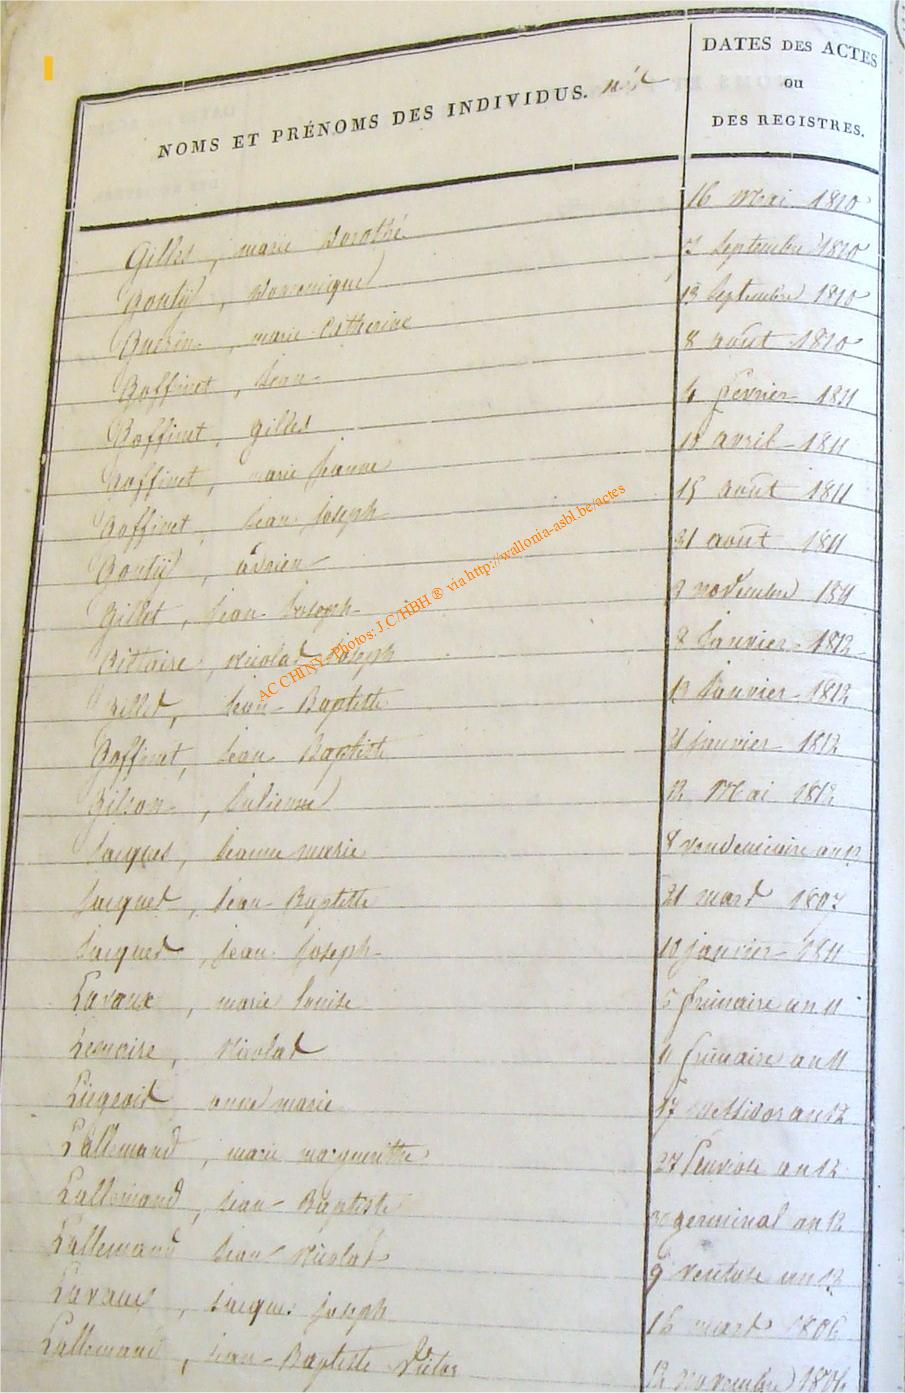 NOMS ET PRÉNOMS DES INDIVIDUS. nés
DATES DES ACTES
ou
DES REGISTRES.
Gillet, marie Dorothé 16 Mai 1810
Gouty, Dominique Septembre 1810
Guerin, marie Catherine 13 Septembre 1810
Goffinet, Jean 8 août 1810
Goffinet, gilles 4 février 1811
Goffinet, marie Jeanne avril 1811
Goffinet, Jean Joseph 15 août 1811
Gouty, adrien 21 août 1811
Gillet, Jean Joseph 9 novembre 1811
Nicolas Joseph 8 Janvier 1812
Gillet, Jean Baptiste 13 Janvier 1812
Goffinet, Jean Baptiste 21 janvier 1812
Gilson, 12 Mai 1812
Jacques, Jeanne marie 8 vendemiaire an 12
Jacques, Jean Baptiste 21 mars 1807
Jacques, Jean Joseph 10 janvier 1811
Lavaux, marie louise frimaire an 11
Lemaire, Nicolas 11 frimaire an 11
Liegeois anne marie 17 messidor an 12
Lallemand, marie margueritte 27 Pluviose an 12
Lallemand, Jean Baptiste germinal an 12
Lallemand Jean Nicolas 9 ventose an 13
Lavaux, Jacques Joseph mars 1806
Lallemand, Jean Baptiste Victor 12 novembre 1806
AC CHINY - Photos: J.C/HBH ® via http://wallonia-asbl.be/actes